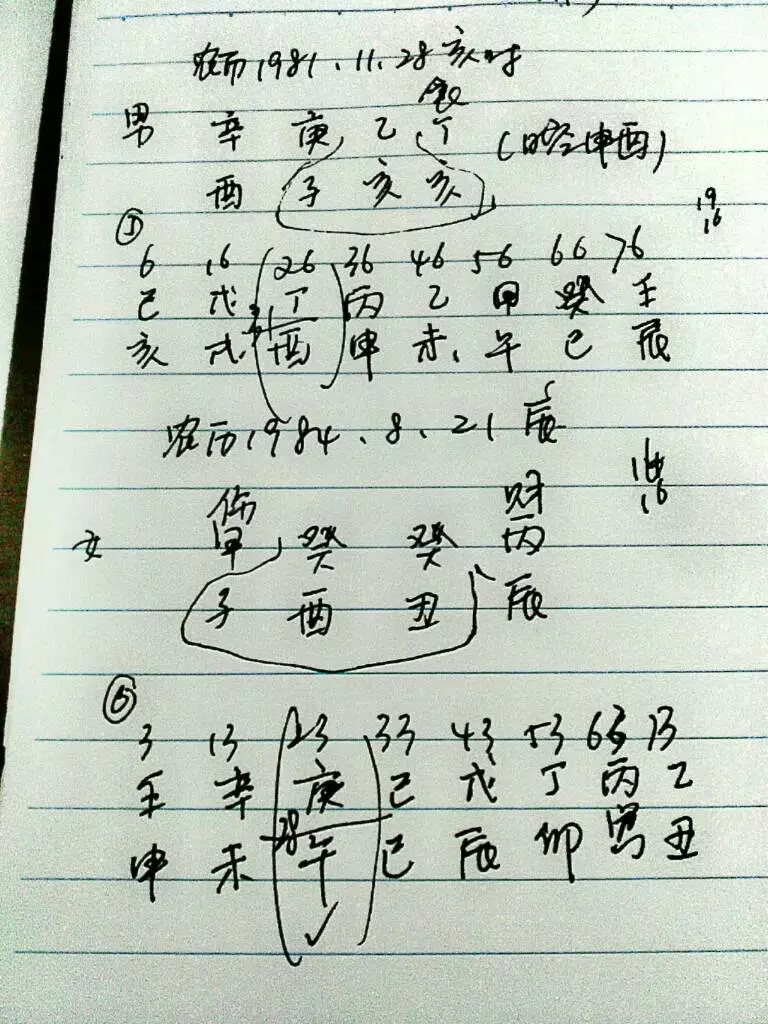 农历1981、11、28亥时
食
男 辛 庚 乙 丁 (时空申酉)
酉 子 亥 亥
① 19 16
6 16 26 36 46 56 66 76
己 戊 丁 丙 乙 甲 癸 壬
亥 戌 酉 申 未、午 巳 辰
农历1984、8、21辰
伤 财 16
女 甲 癸 癸 丙
子 酉 丑 辰
⑥
3 13 23 33 43 53 63 73
壬 辛 庚 己 戊 丁 丙 乙
申 未 28 午 巳 辰 卯 寅 丑